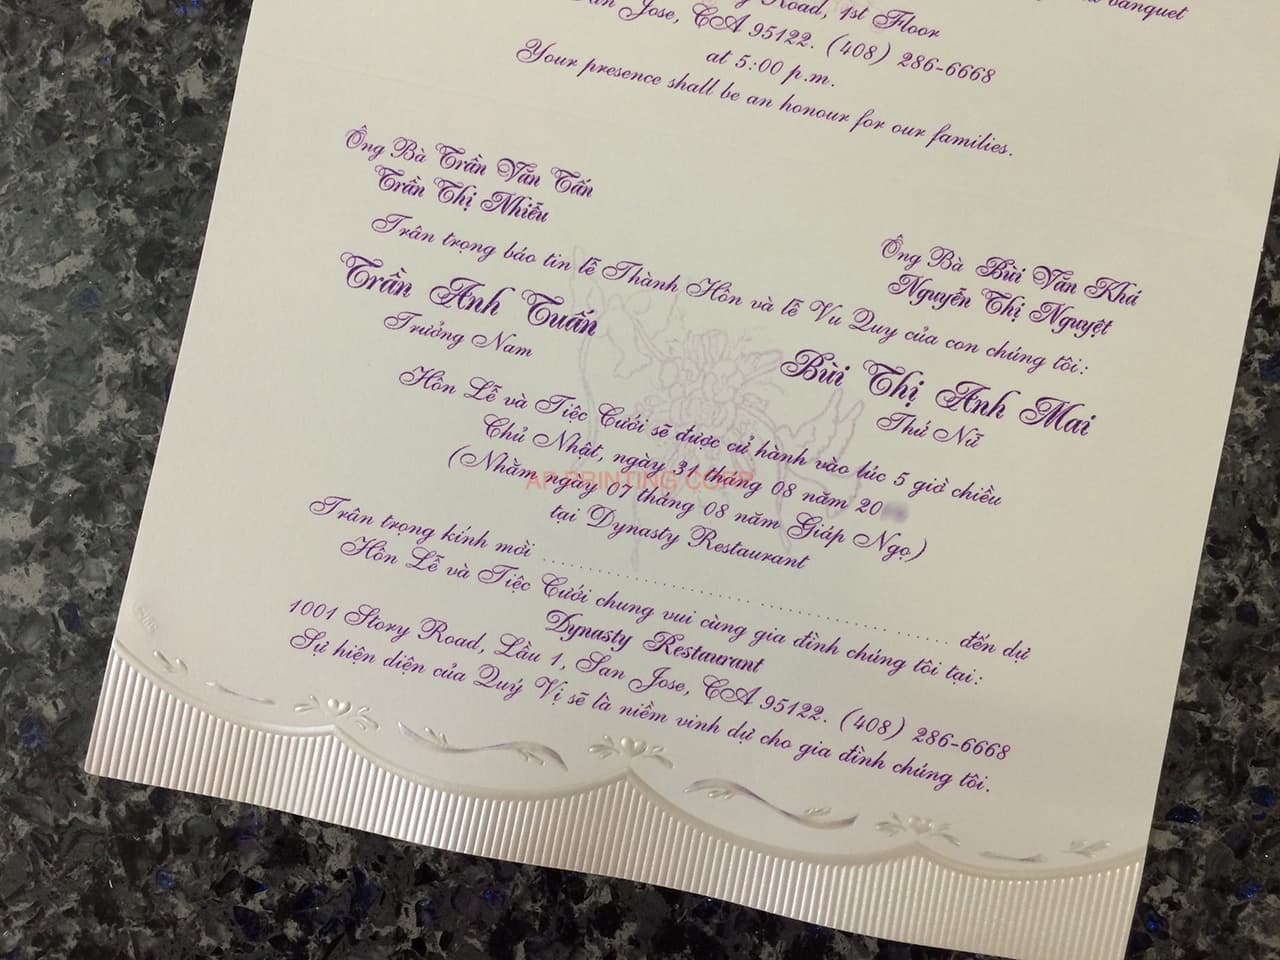 banquet
Road, 1st Floor
San Jose, CA 95122. (408) 286-6668
at 5:00 p.m.
Your presence shall be an honour for our families.
Ông Bà Trần Văn Tấn
Trần Thị Nhiễu
Ông Bà Bùi Văn Khá
Nguyễn Thị Nguyệt
Trân trọng báo tin lễ Thành Hôn và lễ Vu Quy của con chúng tôi:
Trần Anh Tuấn
Trưởng Nam
Bùi Thị Anh Mai
Thứ Nữ
Hôn Lễ và Tiệc Cưới sẽ được cử hành vào lúc 5 giờ chiều
Chủ Nhật, ngày 31 tháng 08 năm 20
(Nhằm ngày 07 tháng 08 năm Giáp Ngọ)
AP PRINTING CORP
tại Dynasty Restaurant
Trân trọng kính mời ........................................................ đến dự
Hôn Lễ và Tiệc Cưới chung vui cùng gia đình chúng tôi tại:
Dynasty Restaurant
1001 Story Road, Lầu 1, San Jose, CA 95122. (408) 286-6668
Sự hiện diện của Quý Vị sẽ là niềm vinh dự cho gia đình chúng tôi.